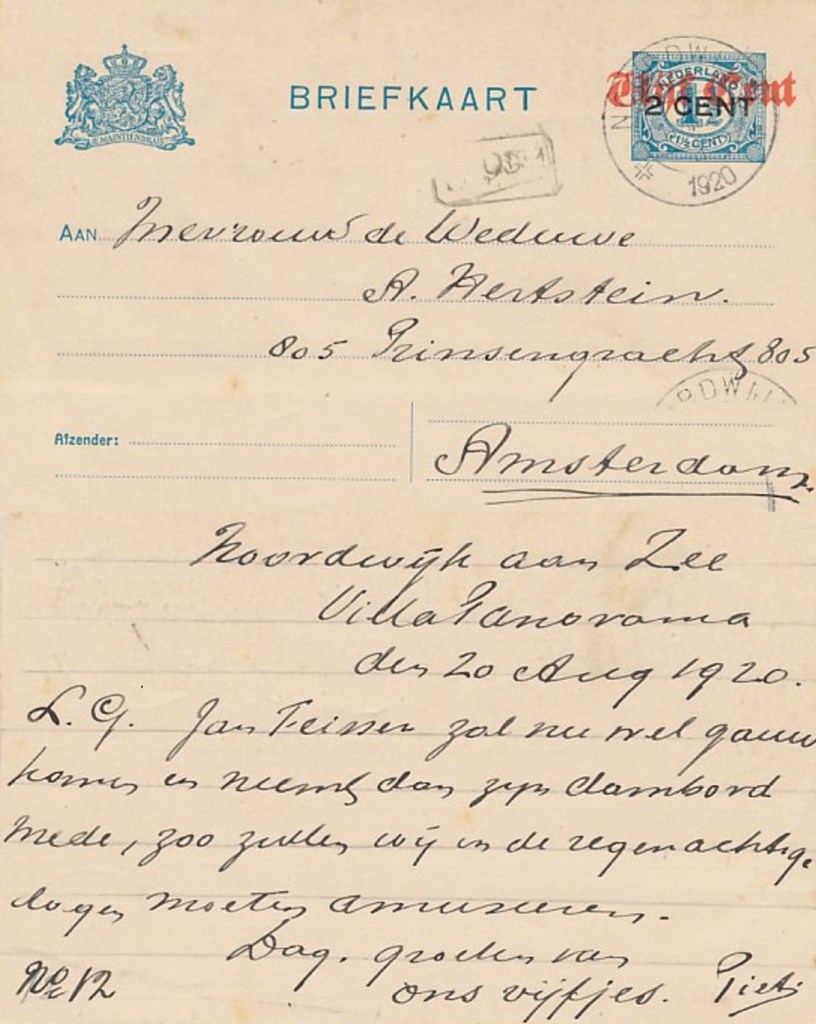 BRIEFKAART
NEDERLAND
Vijf Cent
2 CENT
(1½ CENT)
1920
JE MAINTIENDRAI
AAN Mevrouw de Weduwe
A. Hertstein.
805 Prinsengracht 805
RDWIJ
Afzender:
Amsterdam
Noordwijk aan Zee
Villa Panorama
den 20 Aug 1920.
L. G. Jan Teisser zal nu wel gauw
komen en neemt dan zijn dambord
mede, zoo zullen wij in de regenachtige
dagen moeten amuseren.
Dag. groeten van
ons vijfjes. Piet
No 12